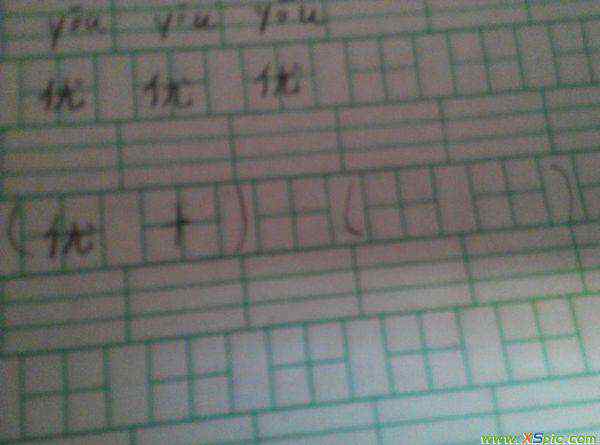 yōu yōu yōu
优 优 优
(优 十) ( )
www.XSpic.com